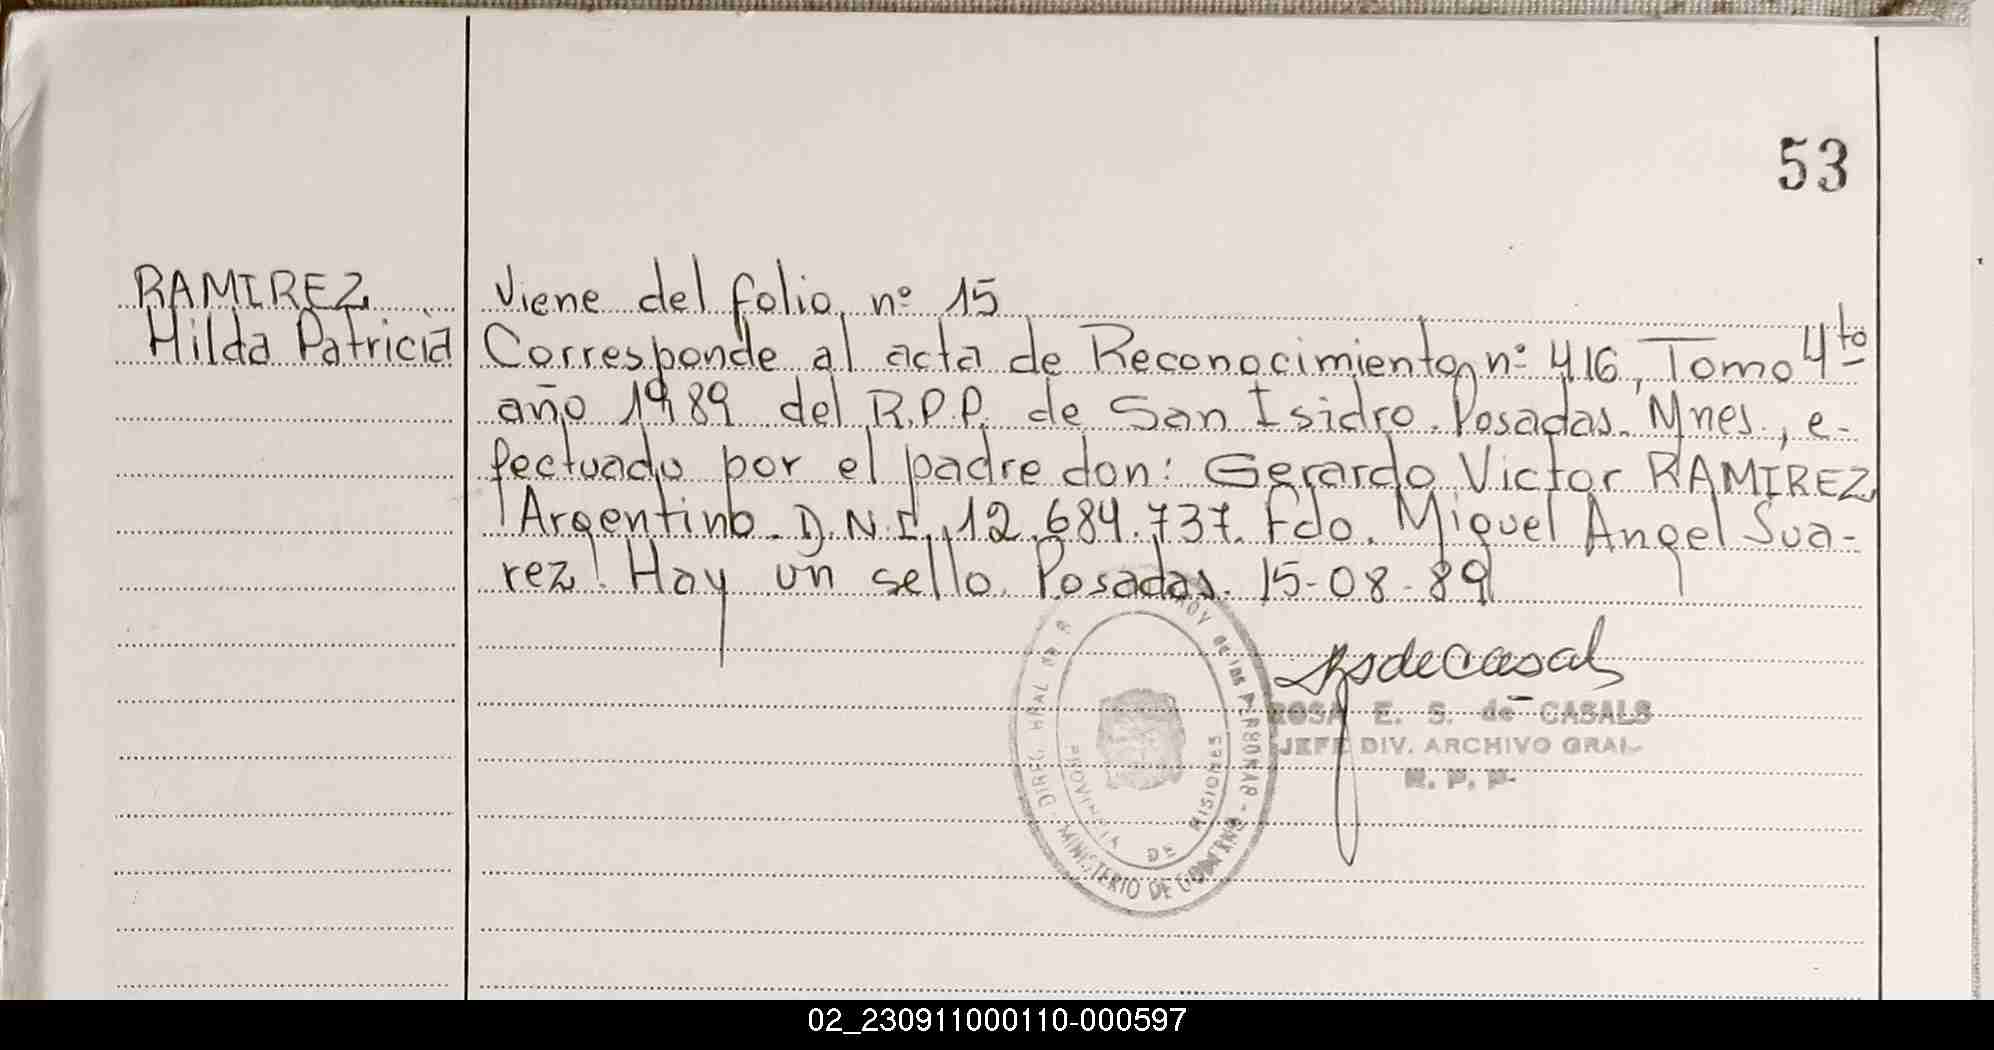 53
RAMIREZ
Hilda Patricia
Viene del folio nº 15
Corresponde al acta de Reconocimiento nº 416, Tomo 4to
año 1989 del R.P.P. de San Isidro. Posadas. Mnes., e-
fectuado por el padre don: Gerardo Victor RAMIREZ
Argentino. D.N.I. 12.684.737. Fdo. Miguel Angel Sua-
rez! Hay un sello. Posadas. 15-08-89
ROSA E. S. de CASALS
JEFE DIV. ARCHIVO GRAL
R. P. P.
de las PERSONAS - MINISTERIO DE GOBIERNO
PROVINCIA DE MISIONES
02_230911000110-000597